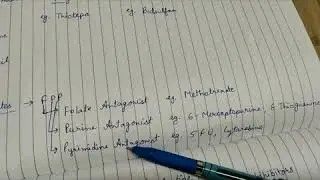 eg. Thiotepa eg. Busulfan
FPP
Folate Antagonist eg. Methotrexate
Purine Antagonist eg. 6-Mercaptopurine, 6 Thioguanine
Pyrimidine Antagonist eg. 5 FU, Cytarabine